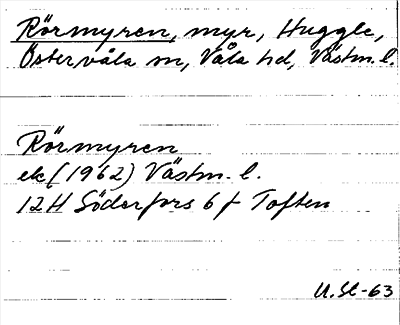 Rörmyren, myr, Huggle,
Östervåla sn, Våla hd, Västm. l.
Rörmyren
ek (1962) Västm. l.
12H Söderfors 6 f Toften
U.St-63